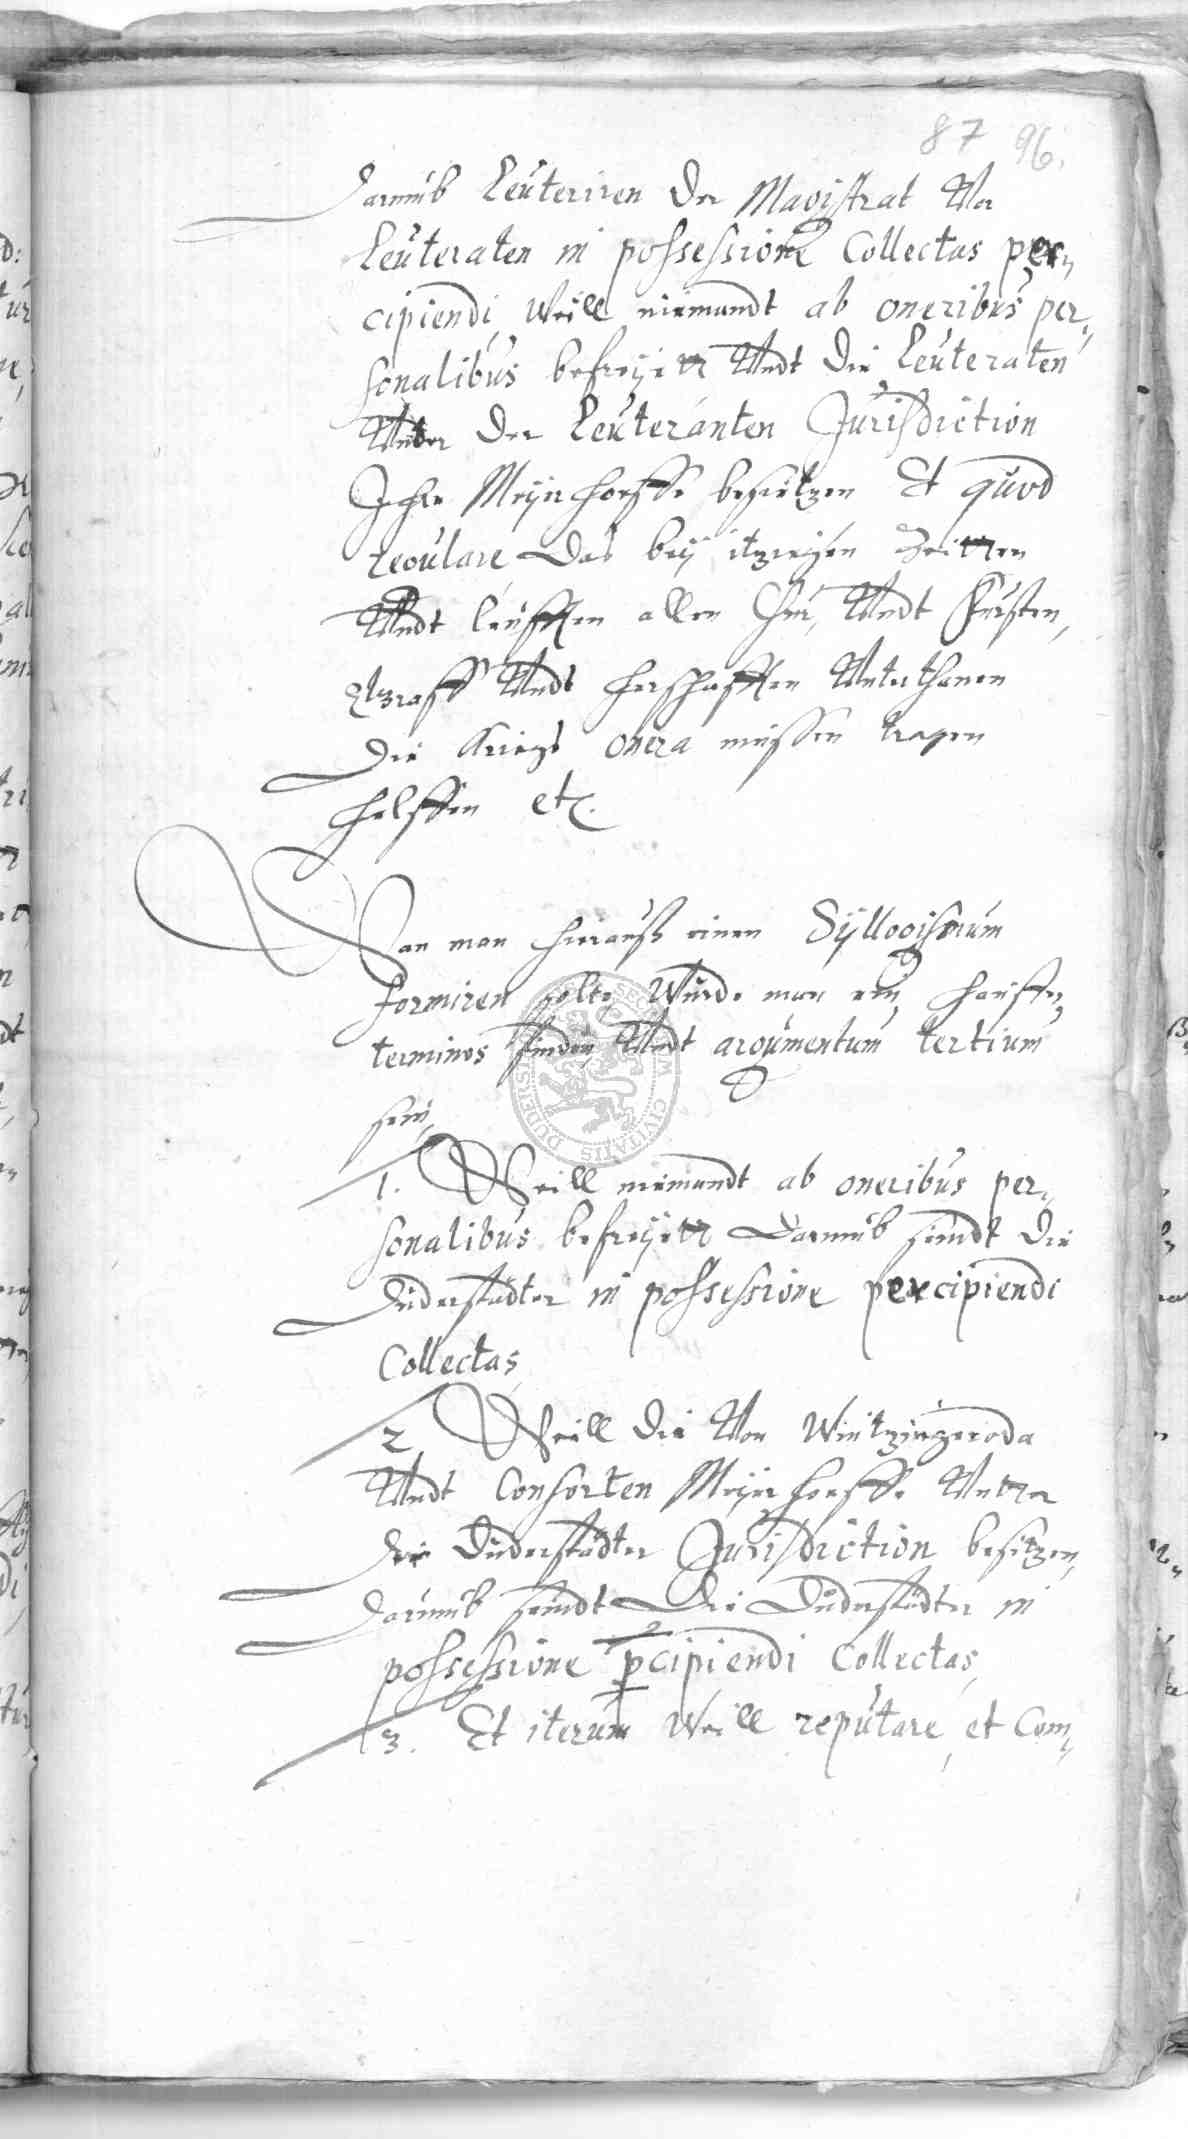 87 96.
Darumb Leuteriren der Magistrat Vor
Leuteraten in possessione Collectas per„
cipiendi, Weill niemandt ab oneribus per„
sonalibus befreyett Undt die Leuteraten
Unter der Leuteranten Jurisdiction
Ihre Meyerhoeffe besietzen Et quod
regulare das bey itzeigen Zeitten
Undt leufften allen Chur, Undt Fursten,
Graff Undt herschafften Unterthanen
die Kriegs onera müssen tragen
helffen etc.
Wan man hierauß einen Syllogismum
formiren solte Würde man ein hauffen
terminos finden Undt argumentum tertium
sein,
1. Weill niemandt ab oneribus per„
sonalibus befreyett Darumb seindt die
Duderstädter in possessione percipiendi
Collectas,
2. Weill die Von Wintzingeroda
Undt Consorten Meyerhoeffe Unter
der Duderstädter Jurisdiction besitzen,
Darumb seindt Die Duderstädter in
possessione pcipiendi Collectas,
3. Et iterum Weill reputare et Com„
SECRETUM CIVITATIS DUDERST